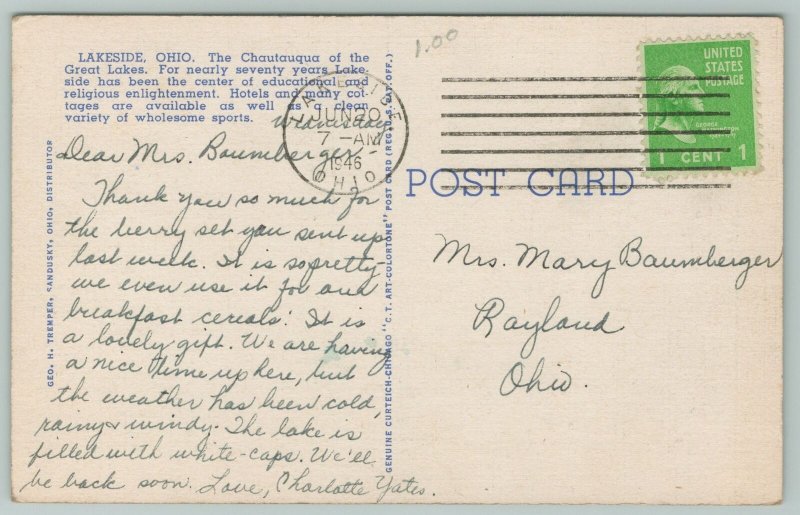 1.00
LAKESIDE, OHIO. The Chautauqua of the
Great Lakes. For nearly seventy years Lake-
side has been the center of educational and
religious enlightenment. Hotels and many cot-
tages are available as well as a clean
variety of wholesome sports.
LAKESIDE
JUN 20
7 - AM
1946
OHIO
UNITED
STATES
POSTAGE
GEORGE
WASHINGTON
1 CENT 1
POST CARD
Wednesday
Dear Mrs. Baumberger -
Thank you so much for
the berry set you sent up
last week. It is so pretty -
we even use it for our
breakfast cereals! It is
a lovely gift. We are having
a nice time up here, but
the weather has been cold,
rainy & windy. The lake is
filled with white-caps. We'll
be back soon. Love, Charlotte Yates.
Mrs. Mary Baumberger
Rayland
Ohio.
GEO. H. TREMPER, SANDUSKY, OHIO, DISTRIBUTOR
GENUINE CURTEICH-CHICAGO "C.T. ART-COLORTONE" POST CARD (REG. U.S. PAT. OFF.)